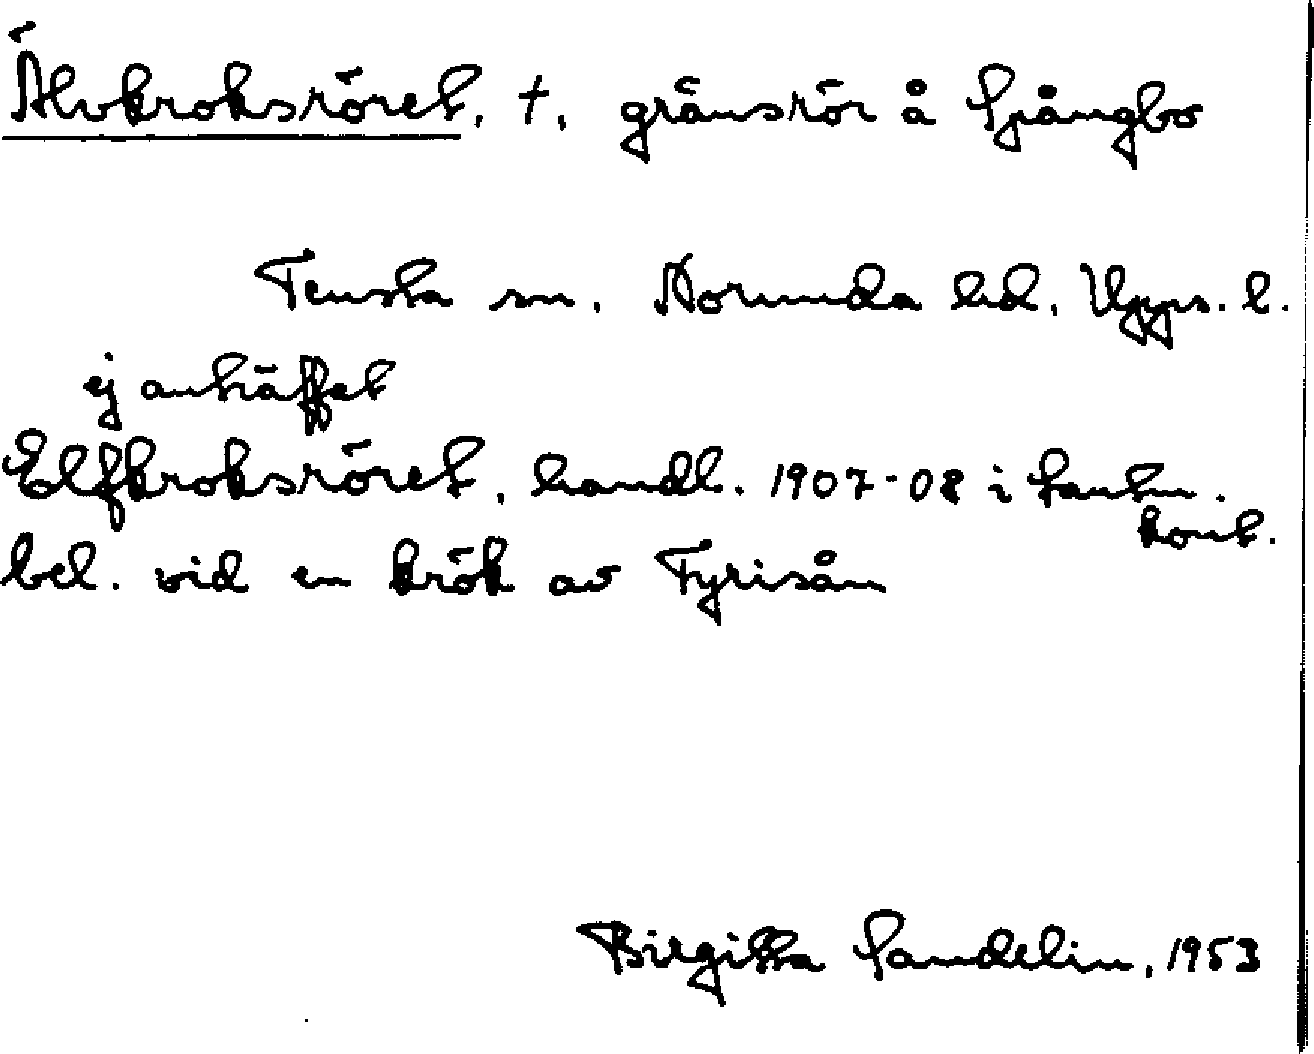 Älvkroksröret, †, gränsrör å Spångbo
Tensta sn. Norunda hd. Upps. l.
ej anträffat
Elfkroksröret, handl. 1907-08 i lantm.
kont.
bel. vid en krök av Fyrisån
Birgitta Sandelin, 1953